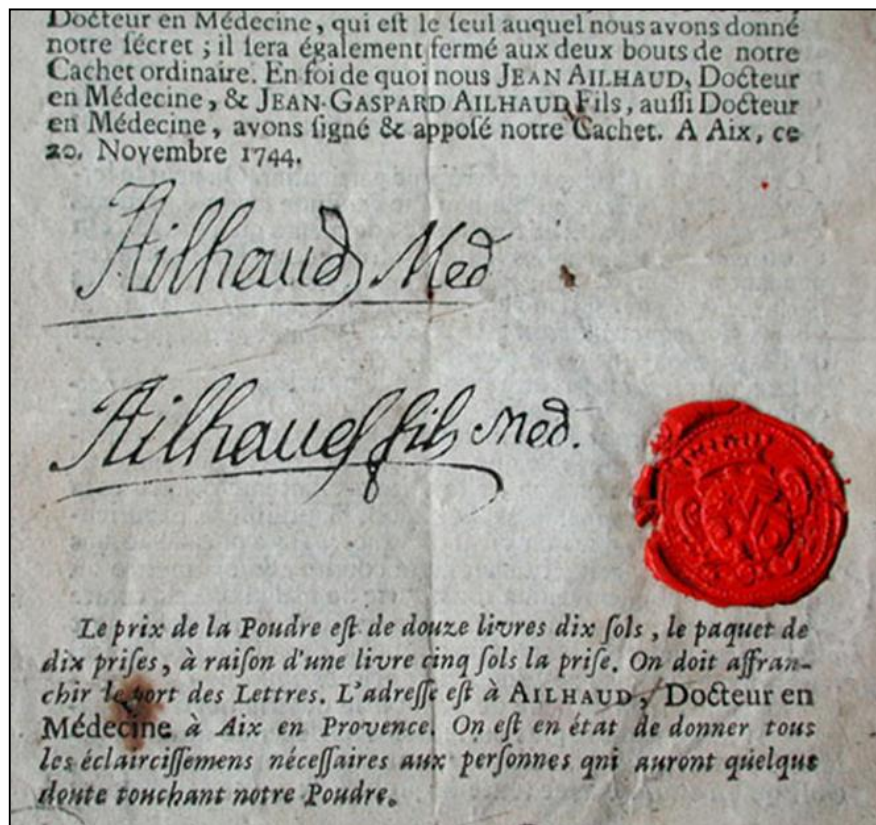 Docteur en Médecine, qui eſt le ſeul auquel nous avons donné
notre ſécret ; il ſera également fermé aux deux bouts de notre
Cachet ordinaire. En foi de quoi nous JEAN AILHAUD, Docteur
en Médecine, & JEAN-GASPARD AILHAUD Fils, auſſi Docteur
en Médecine, avons ſigné & appoſé notre Cachet. A Aix, ce
20. Novembre 1744.
Ailhaud Med
Ailhaud fils Med.
Le prix de la Poudre eſt de douze livres dix ſols, le paquet de
dix priſes, à raiſon d'une livre cinq ſols la priſe. On doit affran-
chir le port des Lettres. L'adreſſe eſt à AILHAUD, Docteur en
Médecine à Aix en Provence. On eſt en état de donner tous
les éclairciſſemens néceſſaires aux perſonnes qni auront quelque
doute touchant notre Poudre.